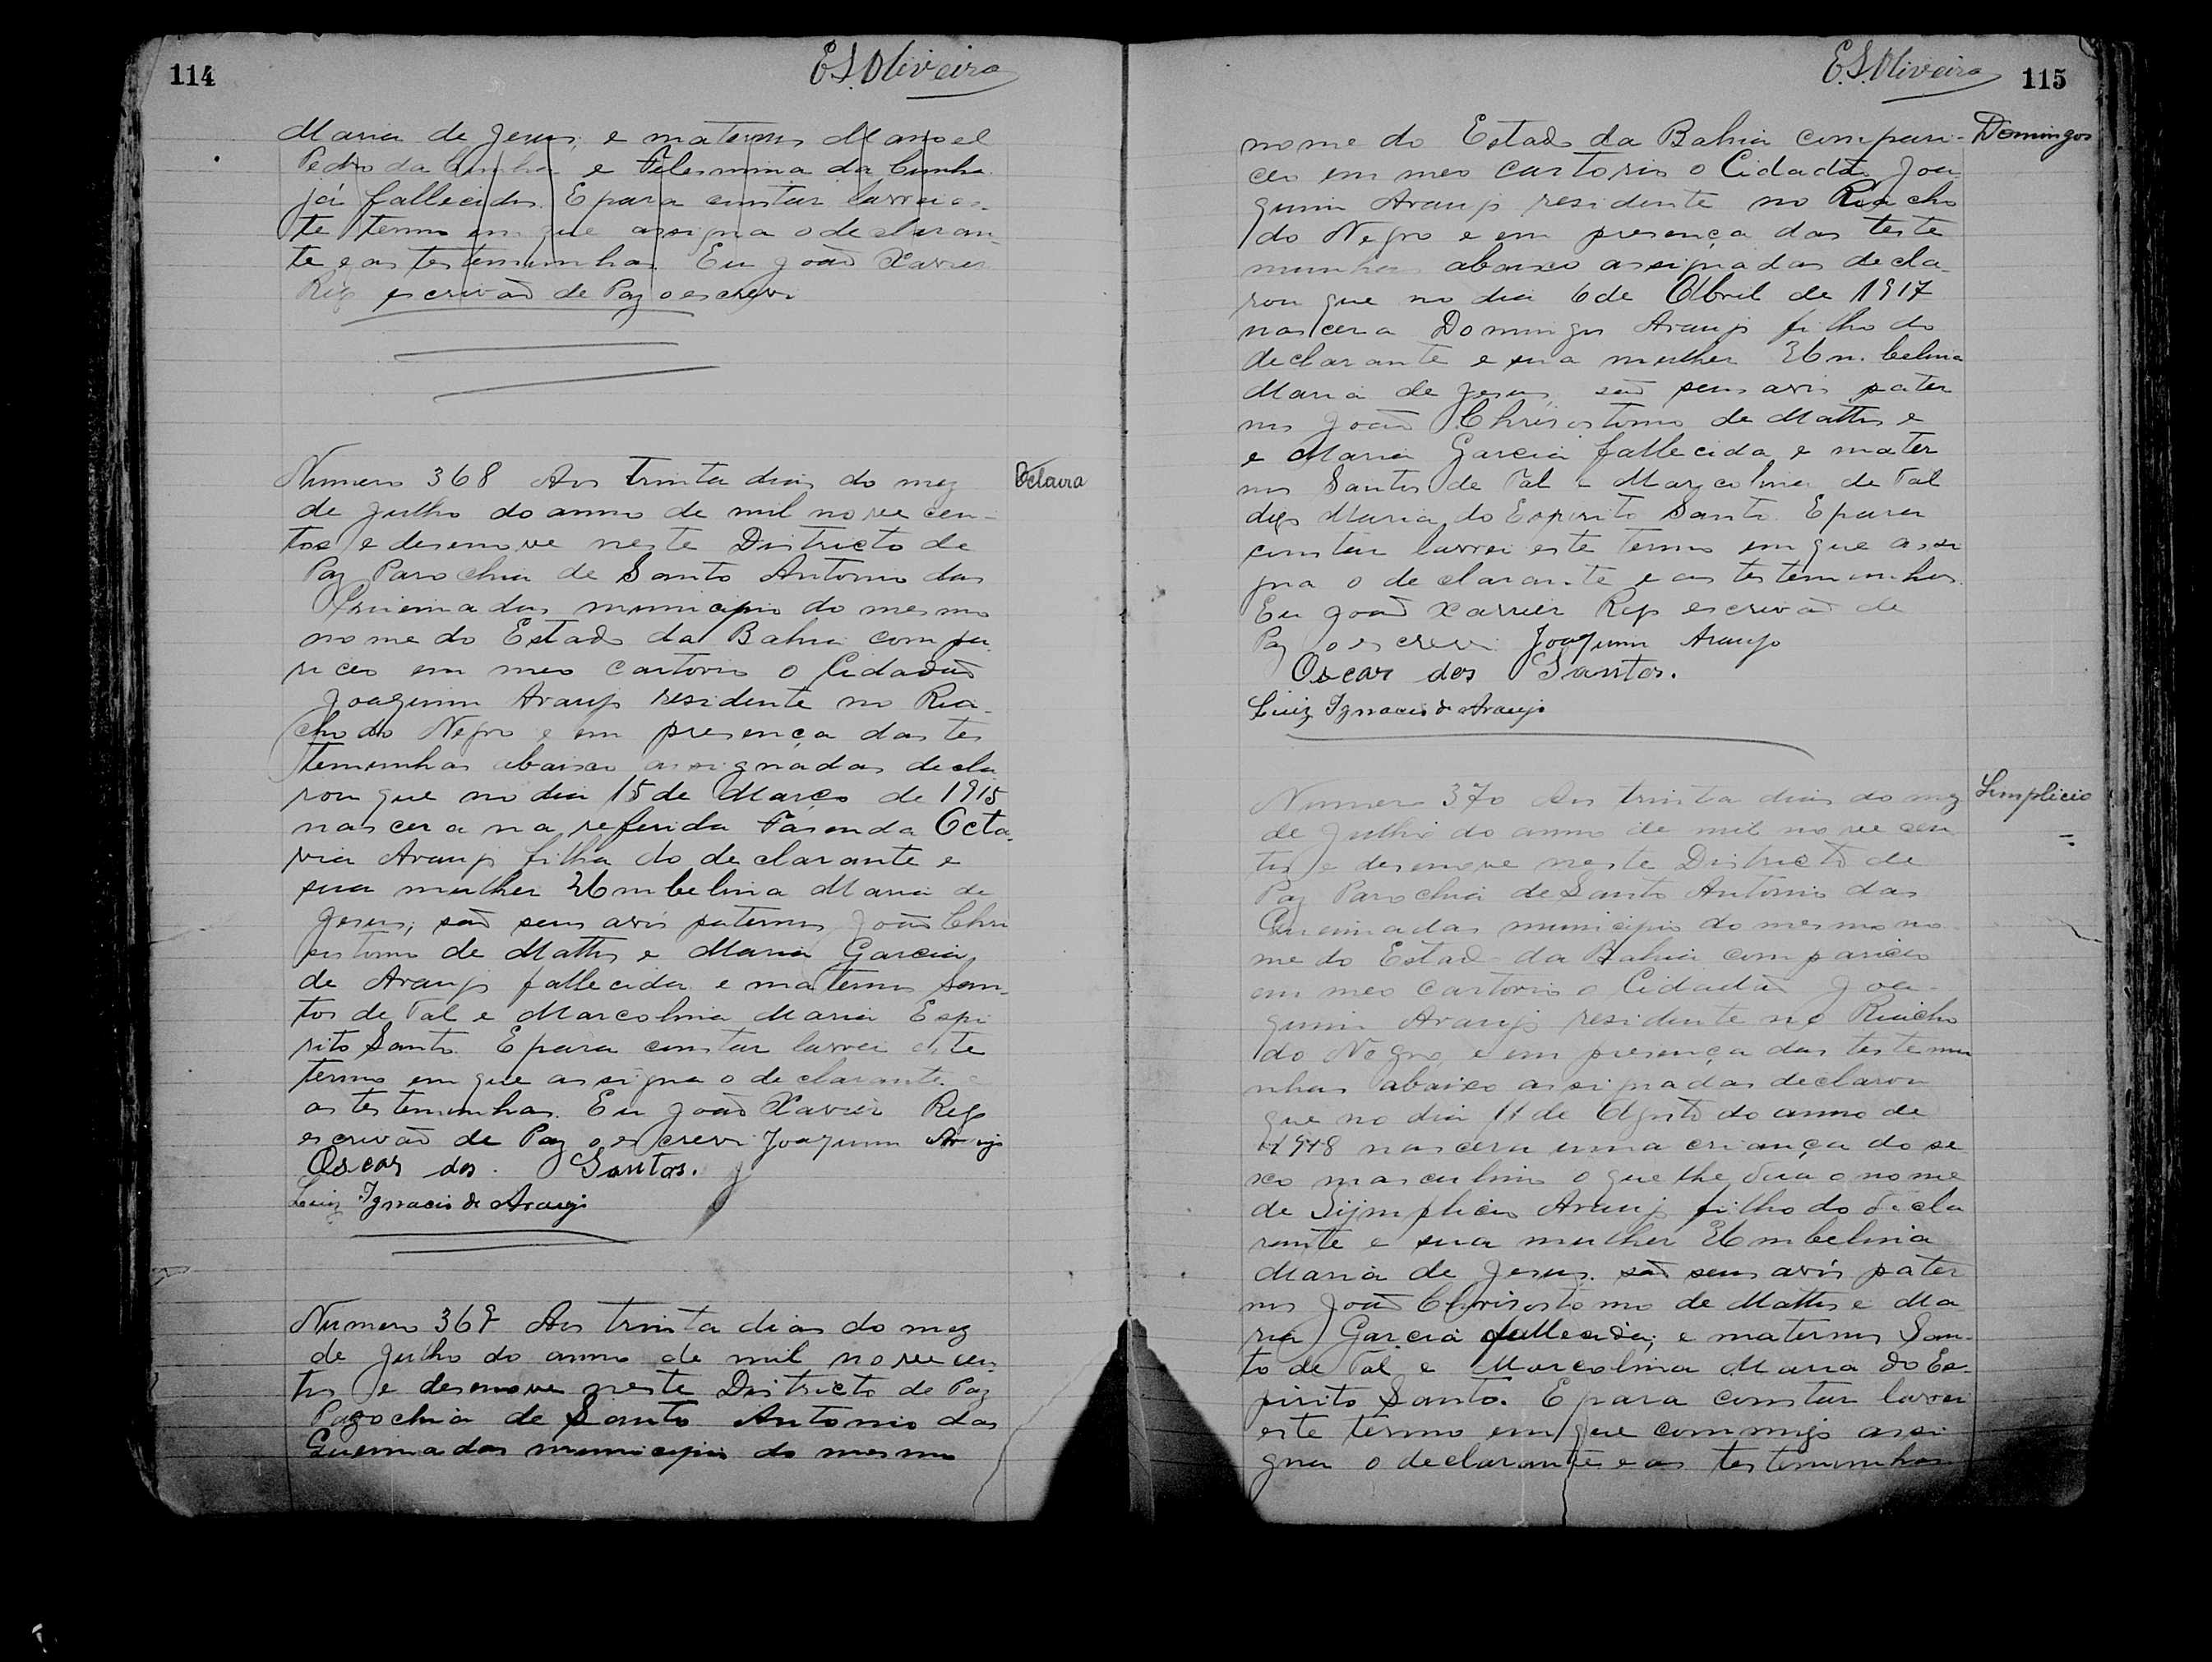 114
E.S. Oliveira
Maria de Jesus; e maternos Manoel
Pedro da Cunha e Felesmina da Cunha
já fallecidos. E para constar lavrei es-
te termo em que assigna o declaran-
te e as testemunhas. Eu João Xavier
Rego escrivão de Paz o escrevi
Numero 368 Aos trinta dias do mez
Octavia
de Julho do anno de mil nove cen-
tos e desenove neste Districto de
Paz Parochia de Santo Antonio das
Queimadas municipio do mesmo
nome do Estado da Bahia compa
riceo em meo cartorio o Cidadão
Joaquim Araujo residente no Ria-
cho do Negro e em presença das tes
temunhas abaixo assignadas decla
rou que no dia 15 de Março de 1915
nascera na referida Fasenda Octa
via Araujo filha do declarante e
sua mulher Umbelina Maria de
Jesus; são seus avós paternos João Chri
sostomo de Mattos e Maria Garcia
de Araujo fallecida e maternos San-
tos de Tal e Marcolina Maria Espi
rito Santo. E para constar lavrei este
termo em que assigna o declarante e
as testemunhas. Eu João Xavier Rego
escrivão de Paz o escrevi Joaquim Araujo
Oscar dos Santos.
Luiz Ignacio de Araujo
Numero 369 Aos trinta dias do mez
de Julho do anno de mil nove cen
tos e desenove neste Districto de Paz
Parochia de Santo Antonio das
Queimadas municipio do mesmo
E.S. Oliveira
115
nome do Estado da Bahia compari-
Domingos
ceo em meo cartorio o Cidadão Joa
quim Araujo residente no Riacho
do Negro e em presença das teste
munhas abaixo assignadas decla-
rou que no dia 6 de Abril de 1917
nascera Domingos Araujo filho do
declarante e sua mulher Umbelina
Maria de Jesus, são seus avós pater
nos João Chrisostomo de Mattos e
e Maria Garcia fallecida e mater
nos Santos de Tal e Marcolina de Tal
digo Maria do Espirito Santo. E para
constar lavrei este termo em que assi
gna o declarante e as testemunhas.
Eu João Xavier Rego escrivão de
Paz o escrevi Joaquim Araujo
Oscar dos Santos.
Luiz Ignacio de Araujo
Numero 370 Aos trinta dias do mez
Simplicio
de Julho do anno de mil nove cen
tos e desenove neste Districto de
Paz Parochia de Santo Antonio das
Queimadas municipio do mesmo no
me do Estado da Bahia compariceo
em meo cartorio o Cidadão Joa-
quim Araujo residente no Riacho
do Negro, e em presença das testemu
nhas abaixo assignadas declarou
que no dia 11 de Agosto do anno de
1918 nascera uma criança do se
xo masculino o que lhe dera o nome
de Sijmplicio Araujo filho do decla
rante e sua mulher Umbelina
Maria de Jesus. são seus avós pater
nos João Chrisostomo de Mattos e Ma
ria Garcia fallecida; e maternos San-
to de Tal e Marcolina Maria do Es-
pirito Santo. E para constar lavrei
este termo em que commigo assi
gna o declarante e as testemunhas